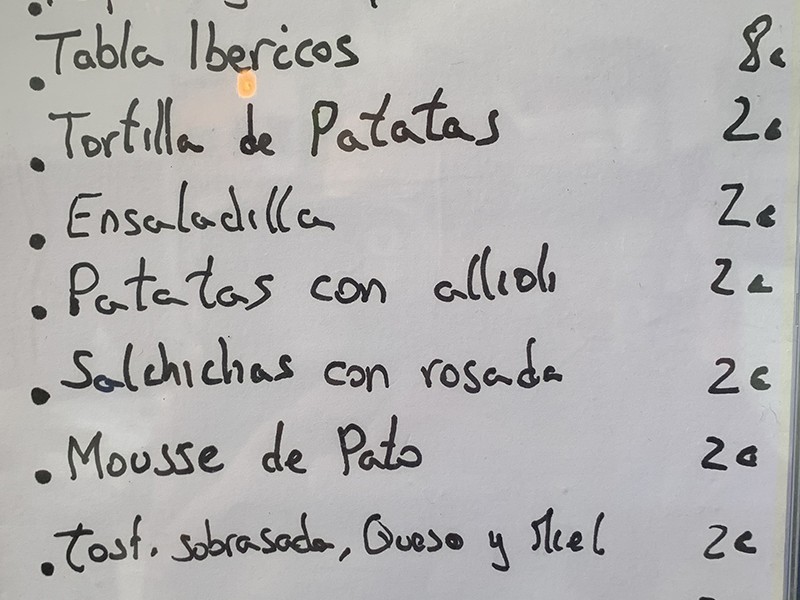 • Tabla Ibericos 8€
• Tortilla de Patatas 2€
• Ensaladilla 2€
• Patatas con allioli 2€
• Salchichas con rosada 2€
• Mousse de Pato 2€
• Tost. sobrasada, Queso y Miel 2€